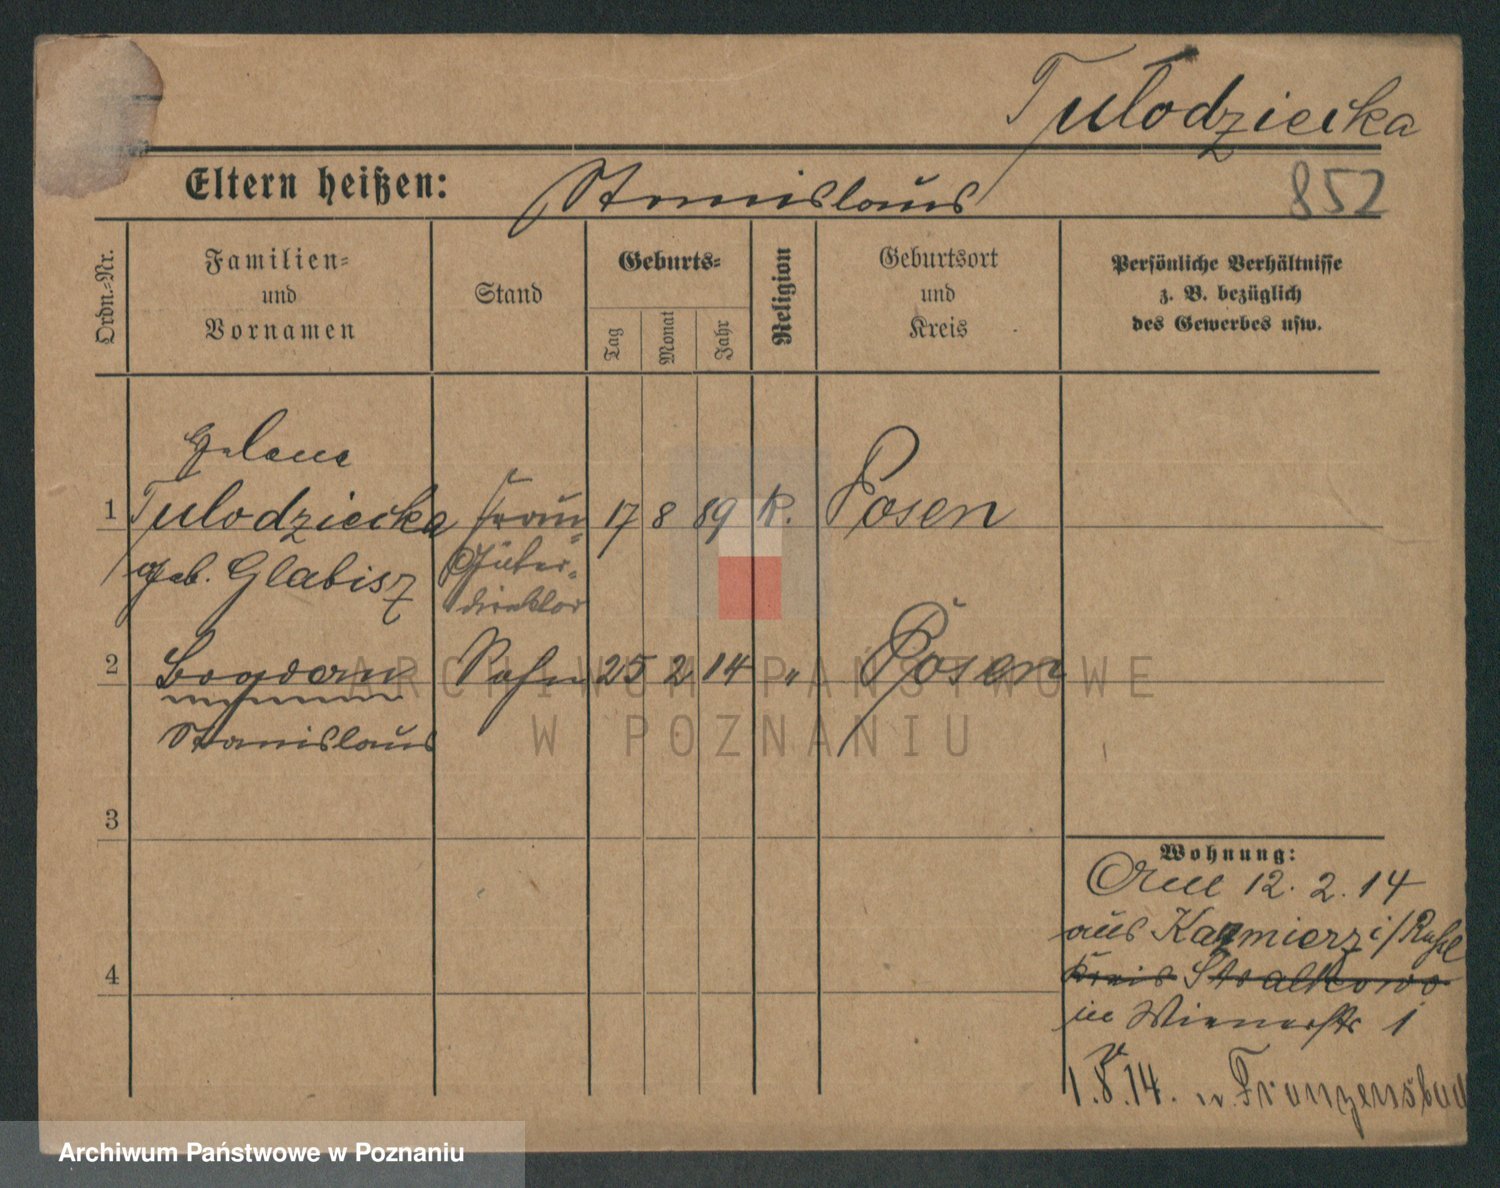 Tułodziecka
Eltern heißen: Stanislaus
852
Ordn.-Nr.
Familien-
und
Vornamen
Stand
Geburts-
Tag
Monat
Jahr
Religion
Geburtsort
und
Kreis
Persönliche Verhältnisse
z. B. bezüglich
des Gewerbes usw.
Helene
1 Tulodziecka Frau 17 8 89 K. Posen
geb. Glabisz Güter-
direktor
2 Bogdan Sohn 25 2 14 " Posen
Stanislaus
3
4
Wohnung:
12. 2. 14
aus Kazmierz i/Rußl
Kreis Stralkowo
in Wienerstr 1
1.8.14. n. Franzensbad
ARCHIWUM PAŃSTWOWE
W POZNANIU
Archiwum Państwowe w Poznaniu